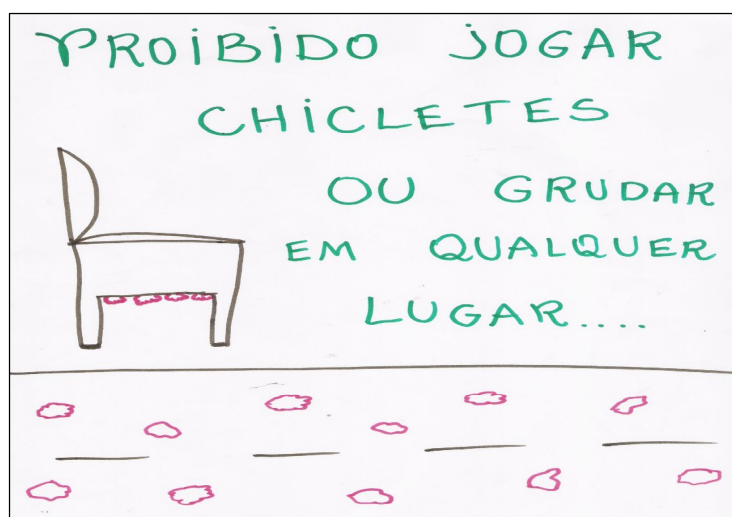 PROIBIDO JOGAR
CHICLETES
OU GRUDAR
EM QUALQUER
LUGAR....